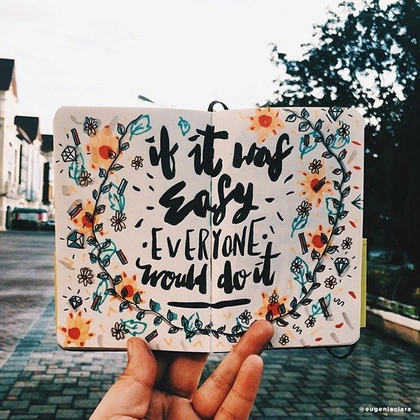 if it was
easy
·EVERYONE·
would do it
@eugeniaclara